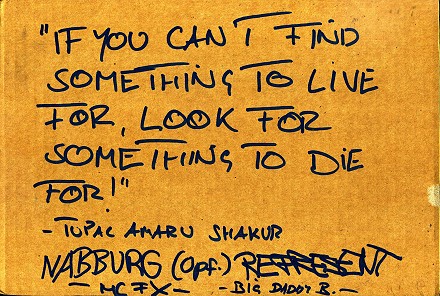 "IF YOU CAN'T FIND
SOMETHING TO LIVE
FOR, LOOK FOR
SOMETHING TO DIE
FOR!"
- TUPAC AMARU SHAKUR
NABBURG (OPF.) - REPRESENT
- MC FX - - BIG DADDY B. -